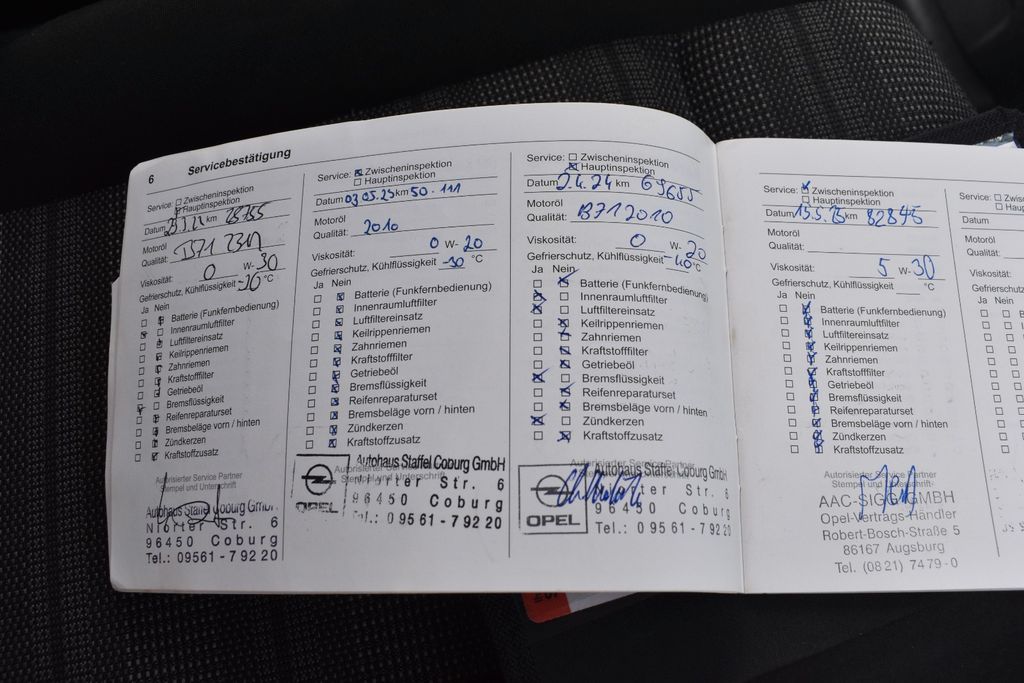 6 Servicebestätigung
Service: Zwischeninspektion
Hauptinspektion
Datum km 28755
Motoröl
Qualität: B71 2312
Viskosität: 0 W-30
Gefrierschutz, Kühlflüssigkeit -30 °C
Ja Nein
Batterie (Funkfernbedienung)
Innenraumluftfilter
Luftfiltereinsatz
Keilrippenriemen
Zahnriemen
Kraftstofffilter
Getriebeöl
Bremsflüssigkeit
Reifenreparaturset
Bremsbeläge vorn / hinten
Zündkerzen
Kraftstoffzusatz
Autorisierter Service Partner
Stempel und Unterschrift
Autohaus Staffel Coburg GmbH
Niorter Str. 6
96450 Coburg
Tel.: 09561-79220
Service: Zwischeninspektion
Hauptinspektion
Datum 03.05.23 km 50.111
Motoröl
Qualität: 2010
Viskosität: 0 W-20
Gefrierschutz, Kühlflüssigkeit -30 °C
Ja Nein
Batterie (Funkfernbedienung)
Innenraumluftfilter
Luftfiltereinsatz
Keilrippenriemen
Zahnriemen
Kraftstofffilter
Getriebeöl
Bremsflüssigkeit
Reifenreparaturset
Bremsbeläge vorn / hinten
Zündkerzen
Kraftstoffzusatz
Autorisierter Service Partner
Stempel und Unterschrift
OPEL
Autohaus Staffel Coburg GmbH
Niorter Str. 6
96450 Coburg
Tel.: 09561-79220
Service: Zwischeninspektion
Hauptinspektion
Datum 2.4.24 km 69655
Motoröl
Qualität: B712010
Viskosität: 0 W-20
Gefrierschutz, Kühlflüssigkeit -40 °C
Ja Nein
Batterie (Funkfernbedienung)
Innenraumluftfilter
Luftfiltereinsatz
Keilrippenriemen
Zahnriemen
Kraftstofffilter
Getriebeöl
Bremsflüssigkeit
Reifenreparaturset
Bremsbeläge vorn / hinten
Zündkerzen
Kraftstoffzusatz
Autorisierter Service Partner
OPEL
Autohaus Staffel Coburg GmbH
Niorter Str. 6
96450 Coburg
Tel.: 09561-79220
Service: Zwischeninspektion
Hauptinspektion
Datum 15.5.25 km 82845
Motoröl
Qualität:
Viskosität: 5 W-30
Gefrierschutz, Kühlflüssigkeit °C
Ja Nein
Batterie (Funkfernbedienung)
Innenraumluftfilter
Luftfiltereinsatz
Keilrippenriemen
Zahnriemen
Kraftstofffilter
Getriebeöl
Bremsflüssigkeit
Reifenreparaturset
Bremsbeläge vorn / hinten
Zündkerzen
Kraftstoffzusatz
Autorisierter Service Partner
Stempel und Unterschrift
AAC-SIGG GMBH
Opel-Vertrags-Händler
Robert-Bosch-Straße 5
86167 Augsburg
Tel. (0821) 7479-0
Service:
Datum
Motoröl
Qualität:
Viskosität:
Gefrierschutz
Ja Nein